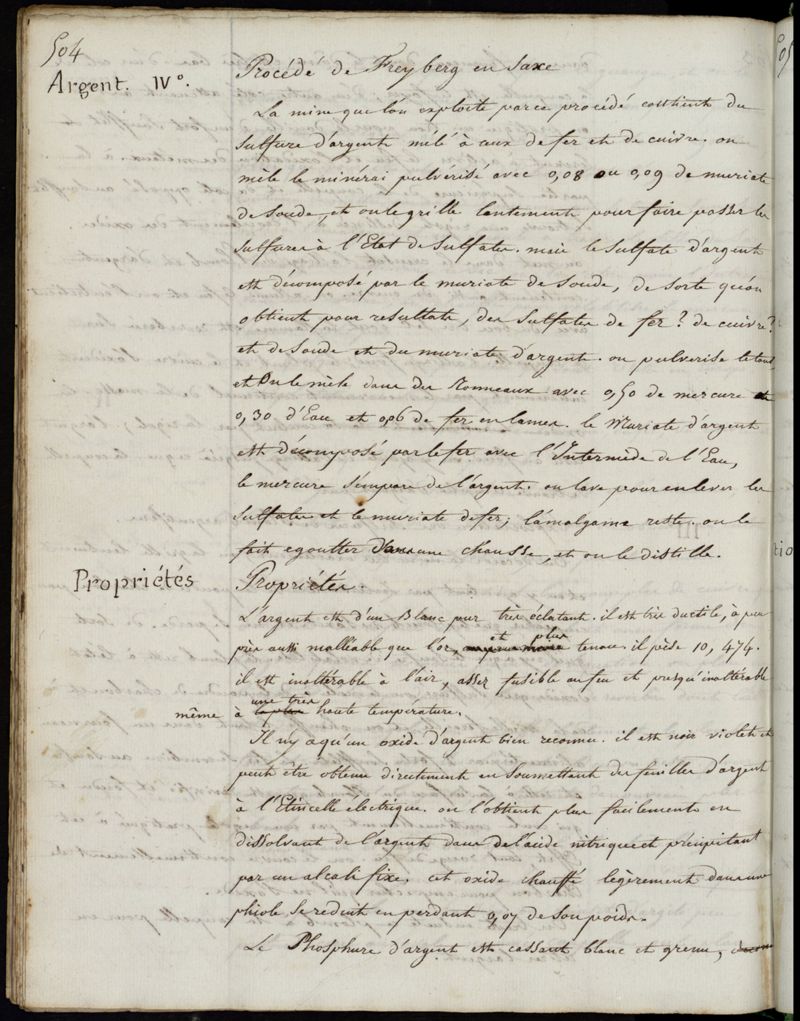 504
Argent. IV°.
Procédé de Freyberg en Saxe
La mine que l'on exploite par ce procédé contient du
Sulfure d'argent mêlé à ceux de fer et de cuivre. on
mêle le minérai pulvérisé avec 0,08 ou 0,09 de muriate
de Soude, et on le grille lentement pour faire passer les
Sulfures à l'Etat de Sulfates. mais le Sulfate d'argent
est décomposé par le muriate de Soude, de sorte qu'on
obtient pour resultats, des Sulfates de fer? de cuivre?
et de Soude et du muriate d'argent. on pulverise le tout
et On le mêle dans des Tonneaux avec 0,50 de mercure
0,30 d'Eau et 0,06 de fer en lames. le Muriate d'argent
est décomposé par le fer avec l'Intermède de l'Eau,
le mercure s'empare de l'argent. on lave pour enlever les
Sulfates et le muriate de fer; l'amalgame reste. on le
fait egoutter dans une chausse, et on le distille.
Propriétés
Propriétés.
L'argent est d'un Blanc pur très éclatant. il est très ductile, à peu
près aussi malléable que l'or, et plus tenace. il pèse 10,474.
il est inaltérable à l'air, assez fusible au feu et presqu'inaltérable
même à une très haute temperature.
Il n'y a qu'un oxide d'argent bien reconnu. il est noir violet et
peut être obtenu directement en Soumettant des feuilles d'argent
à l'Etincelle électrique. on l'obtient plus facilement en
dissolvant de l'argent dans de l'acide nitrique et précipitant
par un alcali fixe. cet oxide chauffé legèrement dans une
phiole, Se reduit en perdant 0,07 de Son poids.
Le Phosphure d'argent est cassant blanc et grenu,